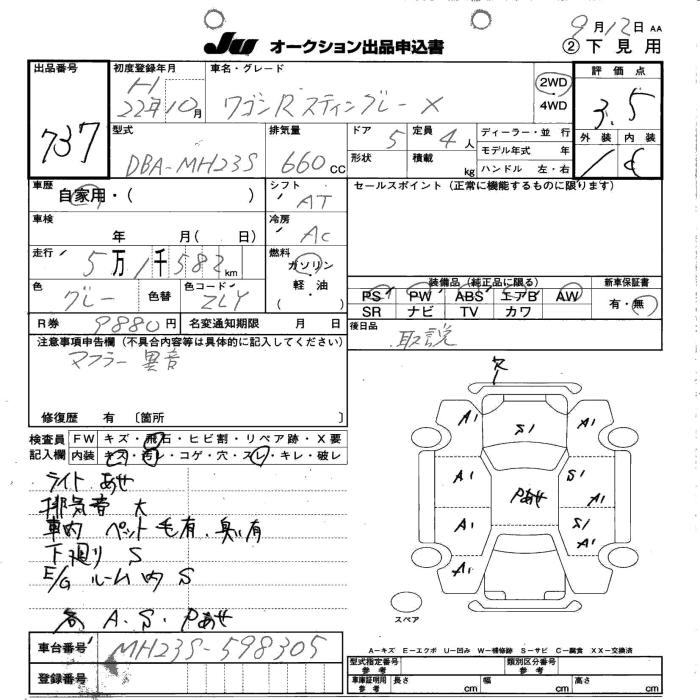 9月12日 AA
Ju オークション出品申込書 ②下見用
出品番号 737
初度登録年月 H 22年10月
車名・グレード ワゴンR スティングレー X
2WD
4WD
評価点 3.5
外装 内装
型式 DBA-MH23S
排気量 660cc
ドア 5
定員 4人
形状
積載 kg
ディーラー・並行
モデル年式 年
ハンドル 左・右
車歴 自家用・( )
シフト AT
セールスポイント(正常に機能するものに限ります)
車検 年 月( 日)
冷房 AC
走行 5万1千582km
燃料 ガソリン 軽油
色 グレー 色替
色コード ZLY
装備品(純正品に限る)
PS PW ABS エアB AW
SR ナビ TV カワ
新車保証書 有・無
R券 9880円
名変通知期限 月 日
後日品 取説
注意事項申告欄(不具合内容等は具体的に記入してください)
マフラー異音
修復歴 有 〔箇所 〕
検査員記入欄
FW キズ・飛石・ヒビ割・リペア跡・X要
内装 キズ・汚レ・コゲ・穴・スレ・キレ・破レ
ライト あせ
排気音 大
車内 ペット毛有.臭い有
下廻り S
E/G ルーム内 S
各 A.S.Pあせ
A1 S1 A1
A1 Pあせ S1 A1
A1 S1 A1
A1
スペア
A-キズ E-エクボ U-凹み W-補修跡 S-サビ C-腐食 XX-交換済
車台番号 MH23S-598305
登録番号
型式指定番号 参考
類別区分番号 参考
車庫証明用 参考 長さ cm 幅 cm 高さ cm